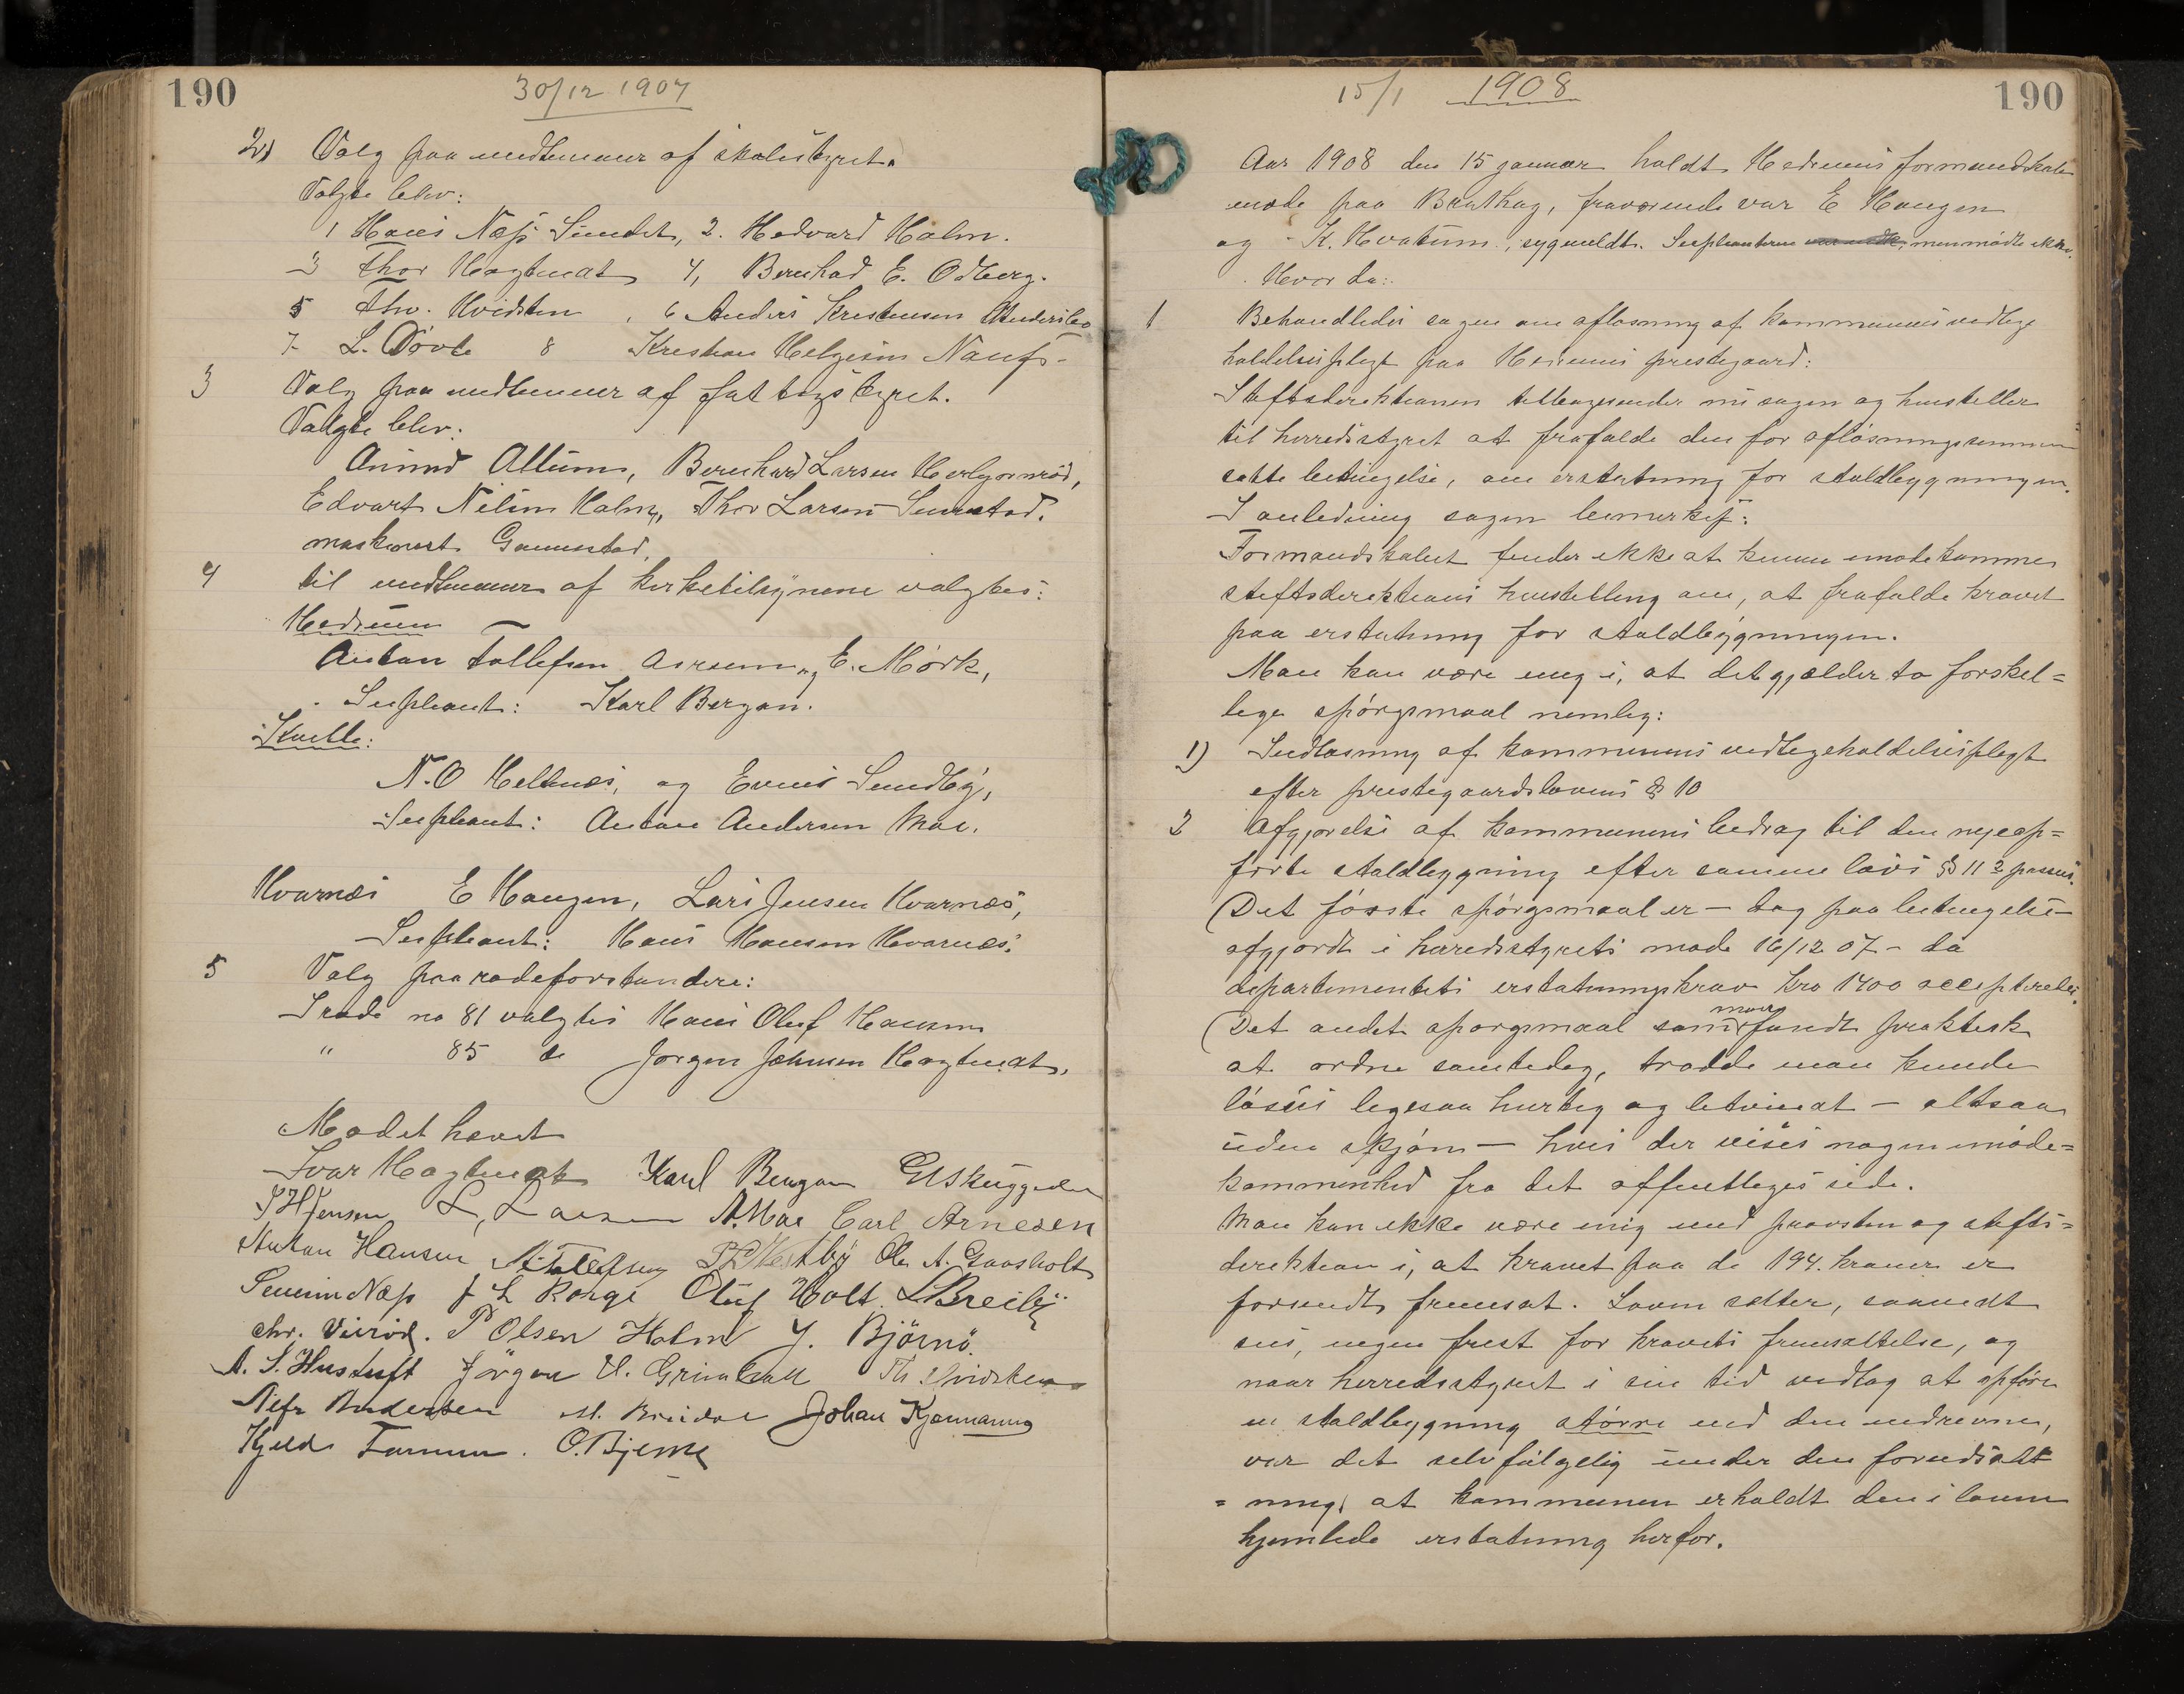 190
30/12 1907
2) Valg paa medlemmer af skolestyret.
Valgte blev:
1 Hans Næss Sundet, 2. Hedvard Holm.
3 Thor Hogtvedt 4, Bernhad E. Odberg.
5 Thv. Hvidsten, 6 Anders Kristensen
7 L. Dövle 8 Kristian Helgesen Nanes
3 Valg paa medlemmer af fattigstyret.
Valgte blev:
Allum, Bernhard Larsen
Edvart Nilsen Holm, Thor Larsen
maskinmest. Gaunstad.
4 til medlemmer af kirketilsynene valgtes:
Hedrum
Anton Tollefsen og E. Mörk,
Supleant: Karl Bergan.
Kvelle:
N. O Hellenes, og Evens Sundby,
Supleant: Anton Andersen Moe.
Hvarnæs E Haugen, Lars Jensen Hvarnæs,
Supleant: Hans Hansen Hvarnæs.
5 Valg paa rodeforstandere:
I rode no 81 valgtes Hans Oluf Hansen
" 85 do Jørgen Johnsen Hogtvedt.
Mødet hævet
Ivar Hogtvedt Karl Bergan
P H Jensen L. Larsen A. Moe Carl Arnesen
Anton Hansen A. Tollefsen Ole A. Gaasholt
Severin Næss J L Korge Oluf Holt. L Breily
chr. Veiröd. P Olsen Holm J. Björnö.
A. S. Hustuft Jörgen U. Th. Hvidsten
Andersen M. Johan Kjønnerød
O. Bjerke
15/1 1908
190
Aar 1908 den 15 januar holdt Hedrums formandskab
møde paa Brathag, fraværende var E Haugen
og K. Hvatum, sygmeldt. Supleanterne men mødte ikke.
Hvor da:
1 Behandledes sagen om afløsning af kommunens vedlige
holdelsesplegt paa Hedrums prestegaard:
Stiftsdirektionen tilbagesender nu sagen og henstiller
til herredsstyret at frafalde den for afløsningssummen
satte betingelse, om erstatning for staldbygningen.
I anledning sagen bemerkes:
Formandskabet finder ikke at kunne imøtekomme
stiftsdirektions henstilling om, at frafalde kravet
paa erstatning for staldbygningen.
Man kan være enig i, at det gjælder to forskel=
lige spörgsmaal nemlig:
1) Indløsning af kommunens vedligeholdelsesplegt
efter prestegaardslovens § 10
2 Afgjørelse af kommunens bidrag til den nyeop=
förte staldbygning efter samme lovs § 11 2 passus.
(Det förste spörgsmaal er – dog paa betingelse –
afgjordt i herredsstyrets møde 16/12 07 – da
departementets erstatningskrav kro 1400 accepteredes.
(Det andet spørgsmaal som man fandt praktisk
at ordne samtidig, trodde man kunde
löses ligesaa hurtig og letvindt – altsaa
uden skjøn – hvis der vises nogen imøde=
kommenhed fra det offentliges side.
Man kan ikke være enig med provsten og stifts=
direktion i, at kravet paa de 194. kroner er
forsendt fremsat. Loven sætter, saavidt
sees, ingen frist for kravets fremsættelse, og
naar herredsstyret i sin tid vedtog at opføre
en staldbygning större end den nedrevne,
var det selvfølgelig under den forudsætt
=ning, at kommunen erholdt den i loven
hjemlede erstatning herfor.